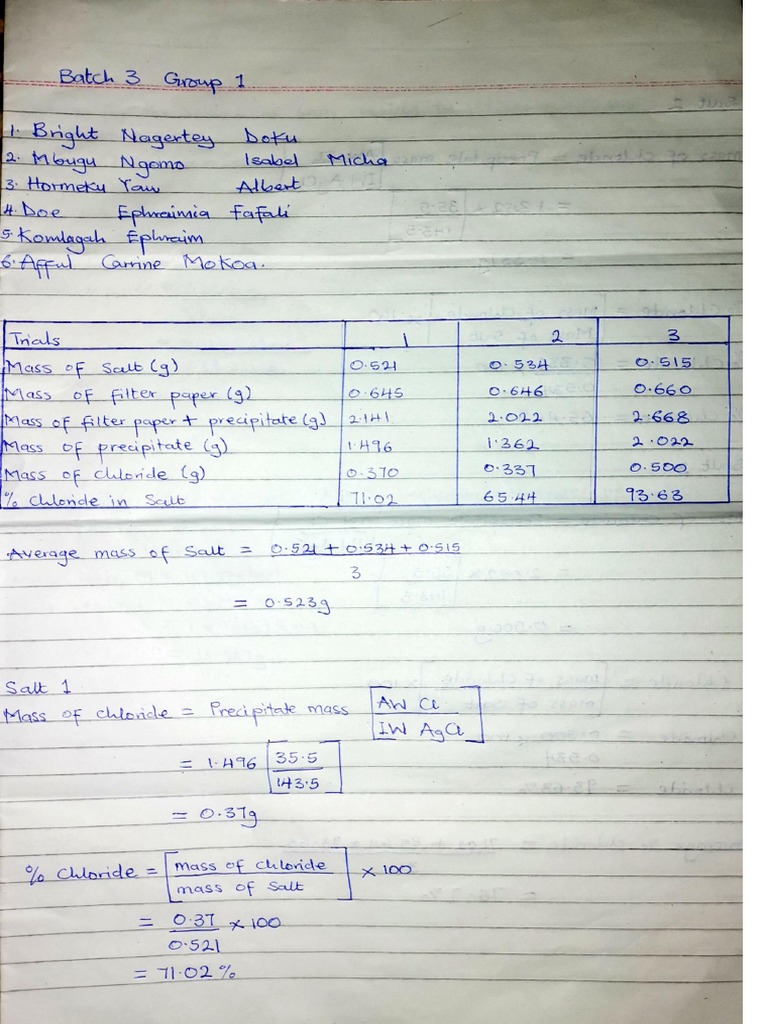 Batch 3 Group 1
1. Bright Nagertey Doku
2. Mbugu Ngomo Isabel Micha
3. Hormeku Yaw Albert
4. Doe Ephraimia Fafali
5. Komlagah Ephraim
6. Afful Carrine Mokoa.
Trials 1 2 3
Mass of Salt (g) 0.521 0.534 0.515
Mass of filter paper (g) 0.645 0.646 0.660
Mass of filter paper + precipitate (g) 2.141 2.022 2.668
Mass of precipitate (g) 1.496 1.362 2.022
Mass of chloride (g) 0.370 0.337 0.500
% Chloride in Salt 71.02 65.44 93.63
Average mass of Salt = 0.521 + 0.534 + 0.515
3
= 0.523g
Salt 1
Mass of chloride = Precipitate mass [AW Cl
IW AgCl]
= 1.496 [35.5
143.5]
= 0.37g
% Chloride = [mass of chloride
mass of Salt] x 100
= 0.37 x 100
0.521
= 71.02%